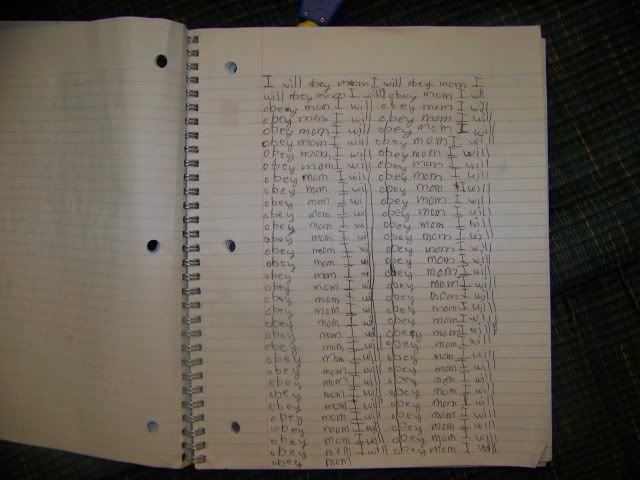 I will obey mom I will obey mom I
will obey mom I will obey mom I will
obey mom I will obey mom I will
obey mom I will obey mom I will
obey mom I will obey mom I will
obey mom I will obey mom I will
obey mom I will obey mom I will
obey mom I will obey mom I will
obey mom I will obey mom I will
obey mom I will obey mom I will
obey mom I will obey mom I will
obey mom I will obey mom I will
obey mom I will obey mom I will
obey mom I will obey mom I will
obey mom I will obey mom I will
obey mom I will obey mom I will
obey mom I will obey mom I will
obey mom I will obey mom I will
obey mom I will obey mom I will
obey mom I will obey mom I will
obey mom I will obey mom I will
obey mom I will obey mom I will
obey mom I will obey mom I will
obey mom I will obey mom I will
obey mom I will obey mom I will
obey mom I will obey mom I will
obey mom I will obey mom I will
obey mom I will obey mom I will
obey mom I will obey mom I will
obey mom I will obey mom I will
obey mom I will obey mom I will
obey mom I will obey mom I will
obey mom